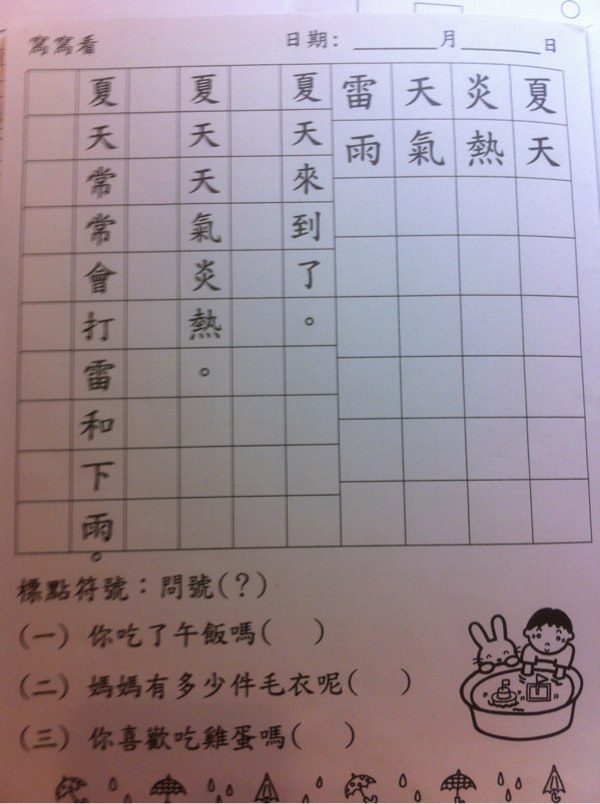 寫寫看
日期：＿＿＿月＿＿＿日
夏天
炎熱
天氣
雷雨
夏天來到了。
夏天天氣炎熱。
夏天常常會打雷和下雨。
標點符號：問號(？)
(一) 你吃了午飯嗎(　)
(二) 媽媽有多少件毛衣呢(　)
(三) 你喜歡吃雞蛋嗎(　)